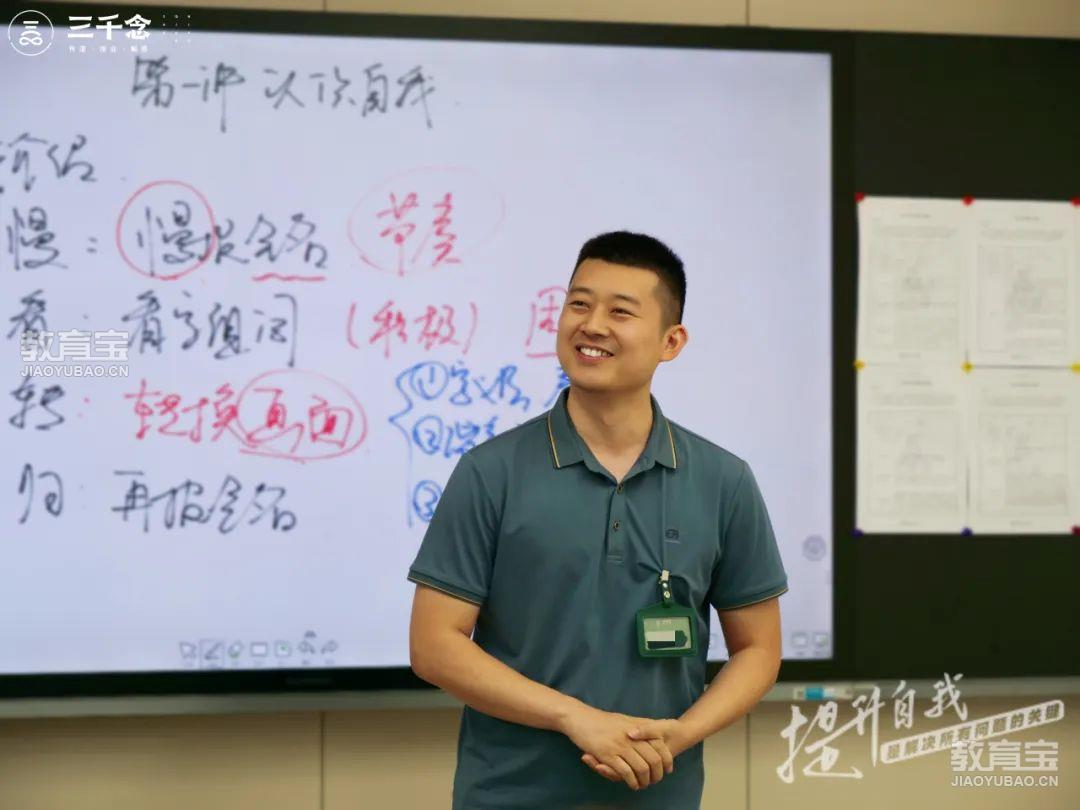 三千念
第一讲 认识自我
介绍
慢：慢报全名 节奏
看：看字组词 (积极)
教育宝
JIAOYUBAO.CN
转：转换画面 ①
②
归：再报全名 ③
提升自我
是解决所有问题的关键
教育宝
JIAOYUBAO.CN